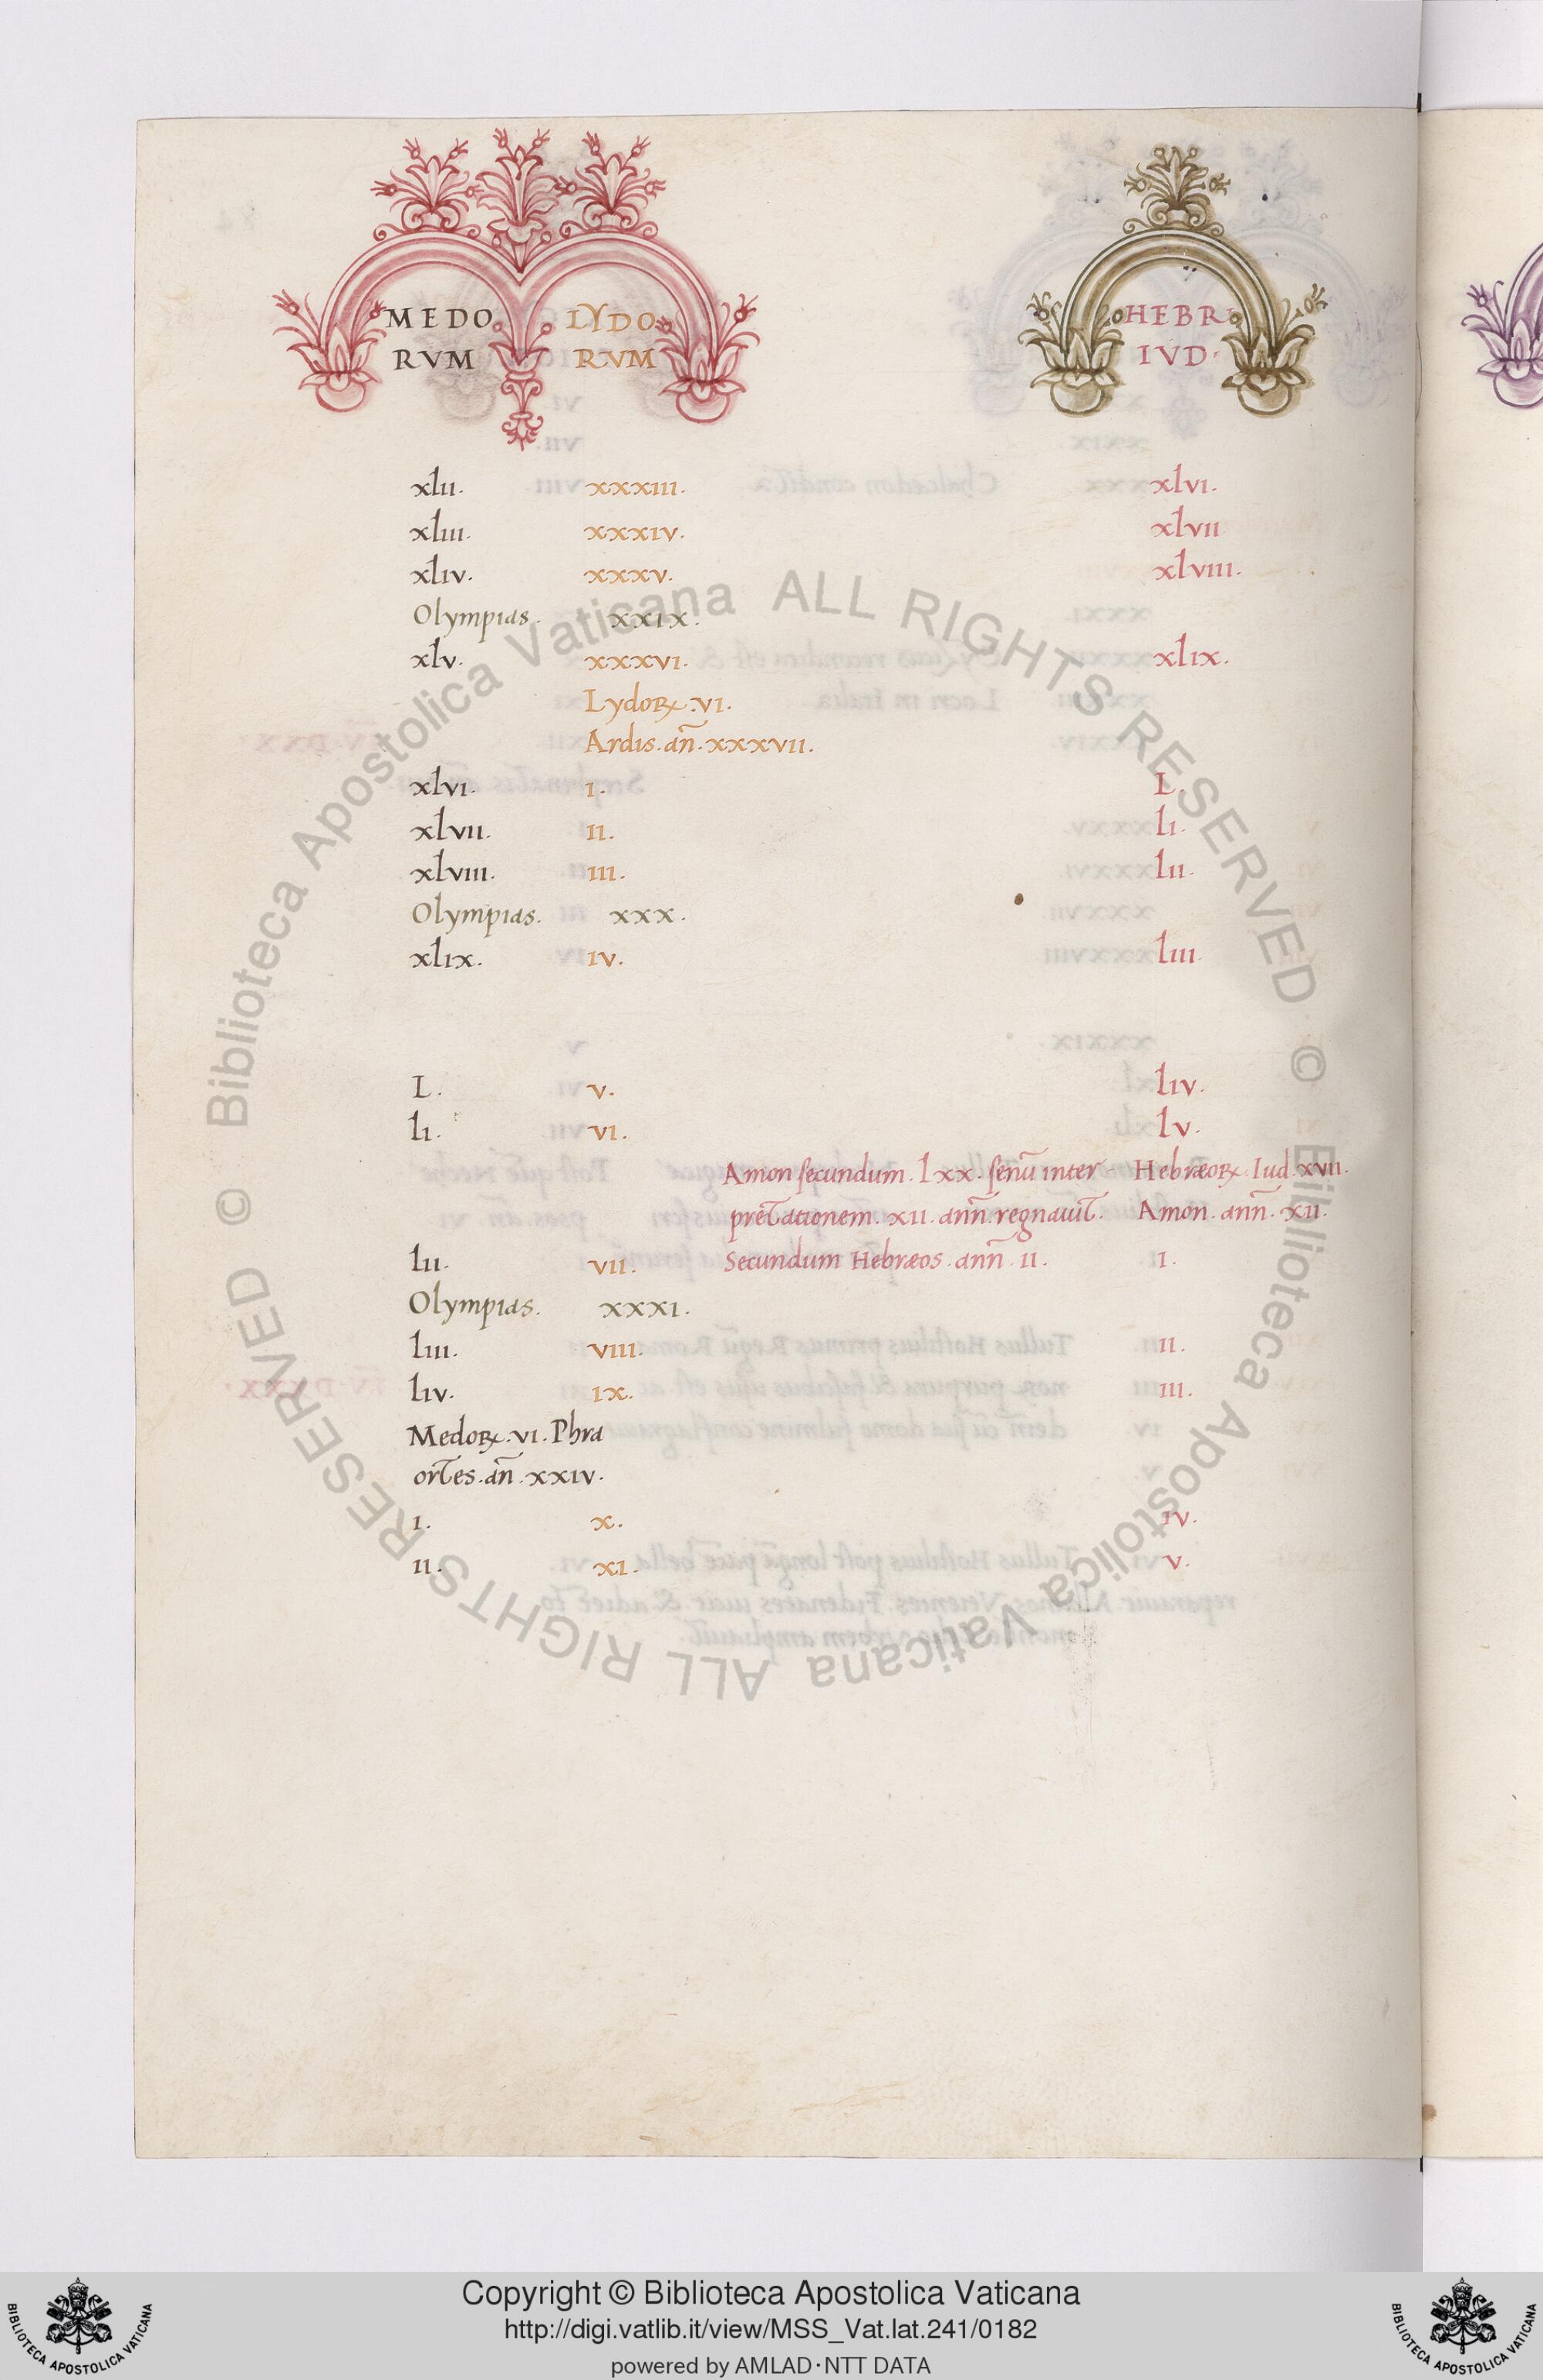 MEDO LYDO HEBR
RVM RVM IVD·
xlii. xxxiii. xlvi.
xliii. xxxiv. xlvii
xliv. xxxv. xlviii.
Olympias. xxix.
xlv. xxxvi. xlix.
Lydoꝝ.vi.
Ardis.añ.xxxvii.
xlvi. i. L.
xlvii. ii. li.
xlviii. iii. lii.
Olympias. xxx.
xlix. iv. liii.
L. v. liv.
li. vi. lv.
Amon ſecundum.lxx.ſenū inter Hebræoꝝ.Iud.xvii.
pretationem.xii.anñ.regnauit. Amon.anñ.xii.
lii. vii. Secundum Hebræos.anñ ii. i.
Olympias. xxxi.
liii. viii. ii.
liv. ix. iii.
Medoꝝ.vi.Phra
ortes.añ.xxiv.
i. x. iv.
ii. xi. v.
© Biblioteca Apostolica Vaticana ALL RIGHTS RESERVED
© Biblioteca Apostolica Vaticana ALL RIGHTS RESERVED
Copyright © Biblioteca Apostolica Vaticana
http://digi.vatlib.it/view/MSS_Vat.lat.241/0182
powered by AMLAD·NTT DATA
BIBLIOTECA APOSTOLICA VATICANA
BIBLIOTECA APOSTOLICA VATICANA